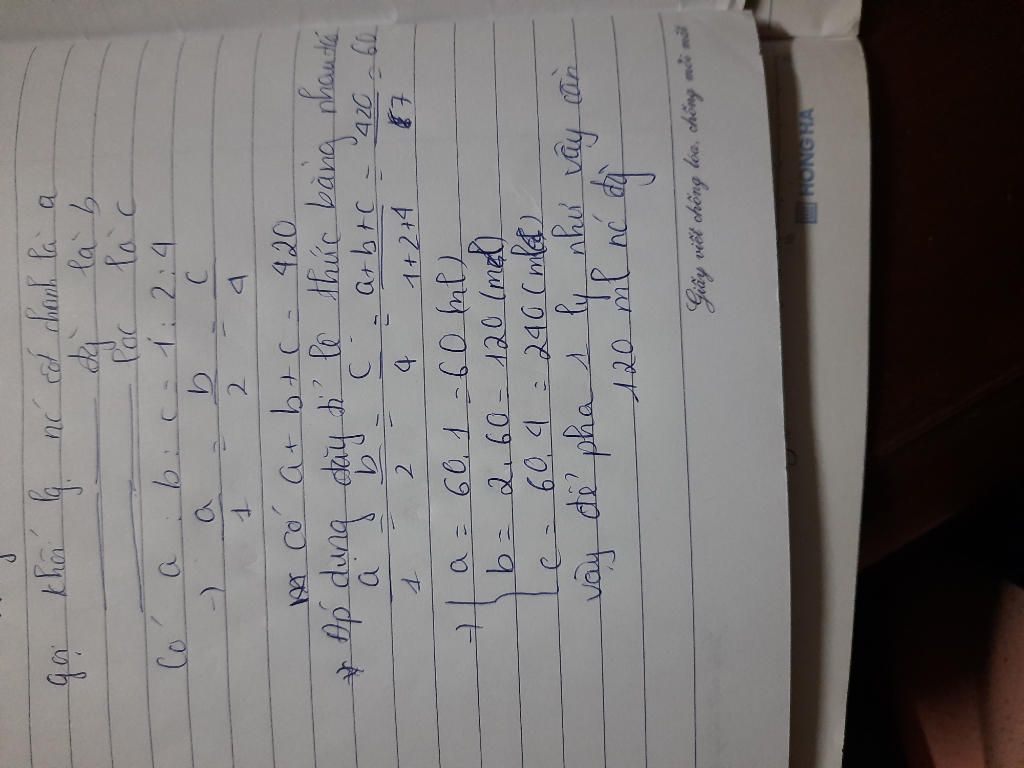 gọi khối lg nć cốt chanh là a
dừ là b
lọc là c
Có a : b : c = 1 : 2 : 4
→ a/1 = b/2 = c/4
có a + b + c = 420
* Áp dụng dãy tỉ lệ thức bằng nhau
a/1 = b/2 = c/4 = a+b+c/1+2+4 = 420/7 = 60
→ { a = 60.1 = 60 (ml)
b = 2.60 = 120 (ml)
c = 60.4 = 240 (ml)
vậy để pha 1 ly như vậy cần
120 ml nć dừ
Giấy viết chống lóa, chống mỏi mắt
HONG HA